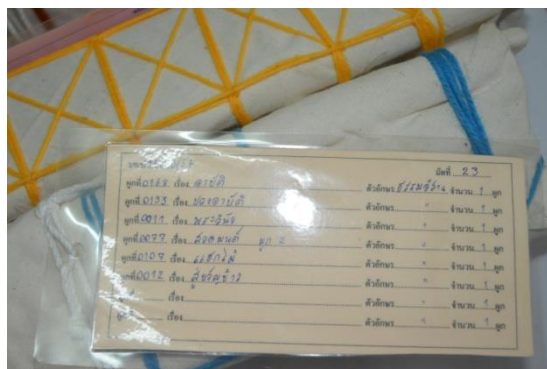 มัดที่ 23
ผูกที่ 0168 เรื่อง อาบัติ ตัวอักษร ธรรมอีสาน จำนวน 1 ผูก
ผูกที่ 0133 เรื่อง ตัวอักษร " จำนวน 1 ผูก
ผูกที่ 0011 เรื่อง พระวินัย ตัวอักษร " จำนวน 1 ผูก
ผูกที่ 0077 เรื่อง สวดมนต์ ผูก 2 ตัวอักษร " จำนวน 1 ผูก
ผูกที่ 0107 เรื่อง ตัวอักษร " จำนวน 1 ผูก
ผูกที่ 0012 เรื่อง ตัวอักษร " จำนวน 1 ผูก
ผูกที่ เรื่อง ตัวอักษร " จำนวน 1 ผูก
ผูกที่ เรื่อง ตัวอักษร " จำนวน 1 ผูก